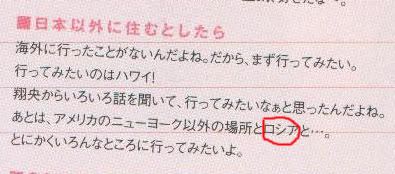 ■日本以外に住むとしたら
海外に行ったことがないんだよね。だから、まず行ってみたい。
行ってみたいのはハワイ!
翔央からいろいろ話を聞いて、行ってみたいなぁと思ったんだよね。
あとは、アメリカのニューヨーク以外の場所とロシアと…。
とにかくいろんなところに行ってみたいよ。